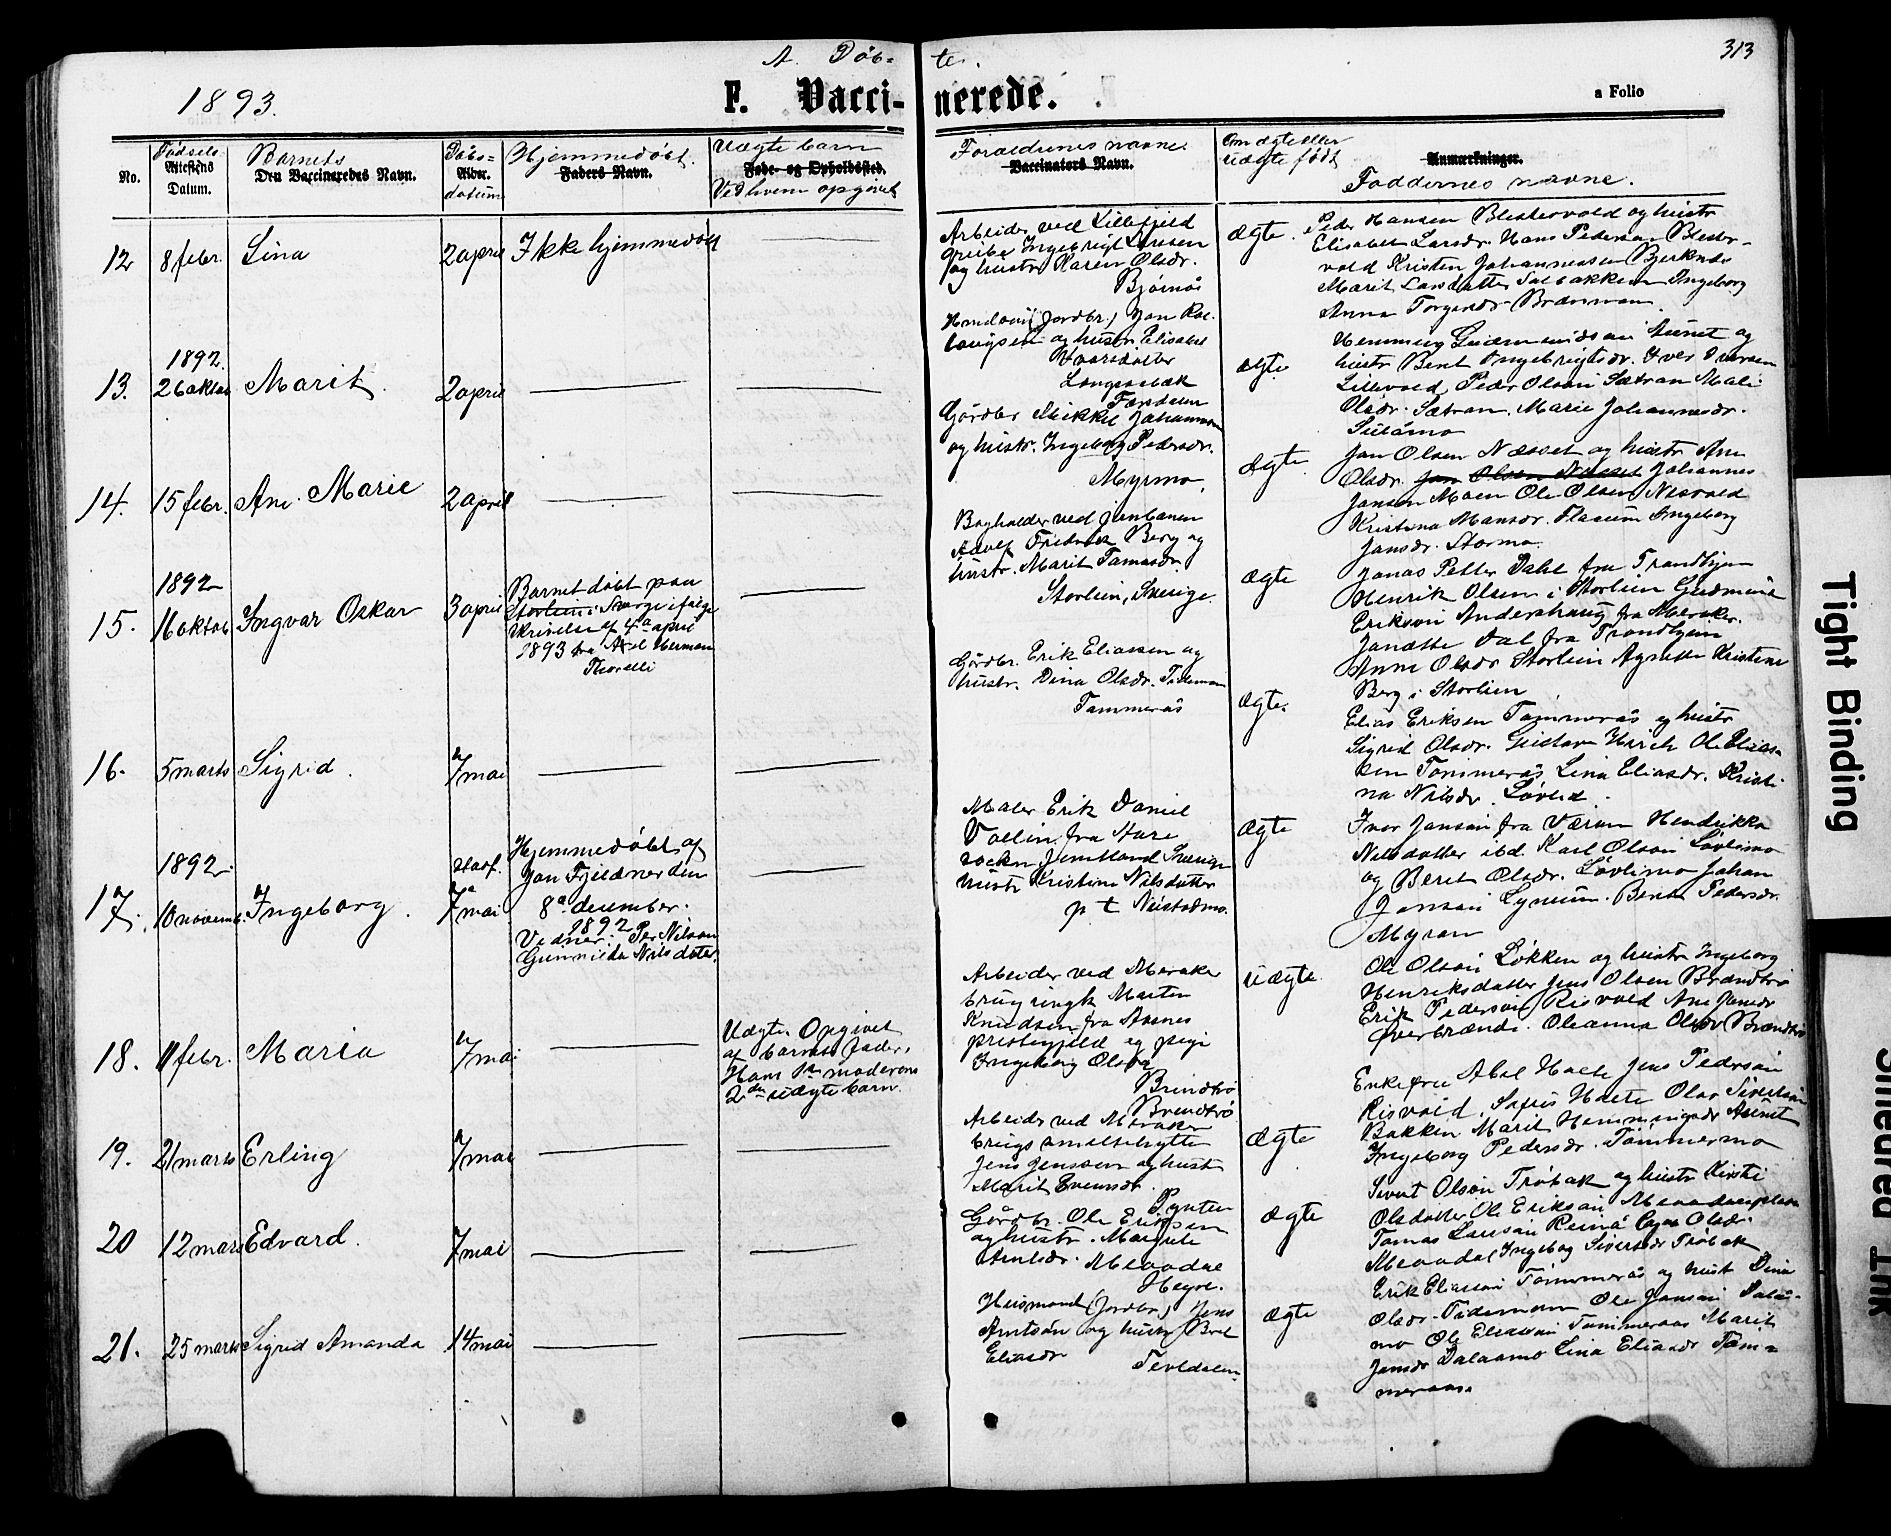 A. Döb- te.
313
1893.
F. Vacci- nerede.
a Folio
No.
Födsels
Attestens
Datum.
Barnets
Den Vaccineredes Navn.
Döbs-
Alder.
datum
Hjemmedöbt.
Faders Navn.
Uægte barn
Føde- og Opholdssted.
Ved hvem opgivet
Foraeldrenes navne.
Vaccinators Navn.
Om ægte eller
uægte født
Anmærkninger.
Faddernes navne.
12 8 febr. Lina 2 april Ikke hjemmedöbt
Arbeider ved Lillefjeld
grube Ingebrigt Larsen
og hustr. Karen Olsdr.
Bjørnås
ægte.
Peder Hansen Blekervold og hustr
Elisabet Larsdr. Hans Pedersen
vold Kristen Johannessen Bjerknæs
Marit Larsdatter Solbakken Ingeborg
Anna Torgersdr. Brænmoen
1892
13. 26 oktob Marit. 2 april
(Jordbr.) Jon
og hustr. Elisabet
ægte.
Hemming Gudmundsen og
hustr Beret Ingebrigtsdr. Iver Iversen
Lillevold, Peder Olsen Sætran Mali
Olsdr. Sætran. Marie Johannesdr.
Sulåmo
14. 15 febr. Ane Marie 2 april
Gårdbr Mikkel Johannesen
og hustr. Ingeborg Pedersdr.
Myrmo,
ægte
Jon Olsen Næsset og hustr Ane
Olsdr. Jon Olsen Næsset Johannes
Jansen Moen Ole Olsen Nesvold
Kristina Monsdr. Flaaum Ingeborg
Jonsdr. Stormo
1892
15. 16 oktob Ingvar Oskar 3 april
Barnet döbt paa
Storlien i Sverge ifølge
skrivelse af 4a april
1893 fra Axel Herman
Thorelli
Bogholder ved Jernbanen
Adolf Fredrik Berg og
hustr. Marit Tomasdr.
Storlien, Sverige.
ægte
Jonas Petter Dahl fra Trondhjem
Henrik Olsen i Storlien Gudmund
Eriksen Andershaug fra Meraker.
Janette Dal fra Trondhjem
Anne Olsdr Storlien Agnette Kristine
Berg i Storlien
16. 5 marts Sigrid. 7a mai
Gårdbr. Erik Eliassen og
hustr. Dina Olsdr. Tideman
Tommerås
ægte.
Elias Eriksen Tømmerås og hustr
Sigrid Olsdr. Gustav Ole Elias-
sen Tømmerås Lina Eliasdr. Kristi-
na Nilsdr. Løvlid.
1892
17. 10 novemb. Ingeborg. Stadf. 7a mai
Hjemmedöbt af
Jon Fjeldner den
8a december.
1892
Vidner: Per Nilson
Gunnilda Nilsdatter.
Maler Erik Daniel
Vallin fra
socken Jemtland Sverige
hustr Kristina Nilsdatter
p t Nustadmo.
ægte
Ivar Jonson fra Værem Hendrikka
Nilsdatter ibd. Karl Olson Løvlimo
og Beret Olsdr. Løvlimo Johan
Jonson Lyneum. Beret Pedersdr.
Myran
18. 11 febr. Maria 7a mai
Uægte. Opgivet
af barnets fader,
Hans 1ste moderens
2det uægte barn.
Arbeider ved Meraker
brug Morten
Knudsen fra Aasnes
prestegjeld og pige
Ingeborg Olsdr
Brendbø
uægte
Ole Olson Løkken og hustr Ingeborg
Henriksdatter Jens Olsen Brændbø
Erik Pederson Risvold Ane Jonsdr
Øverbrænde. Oleanna Olsdr Brændbø
19. 21 marts Erling 7a mai
Brendbø
Arbeider ved Meraker
brugs smeltehytte
Jens Jenssen og hust
Marit Evensdr.
ægte
Enkefru Abel Holte Jens Pederson
Risvold. Holte Olav Sivertson
Bakken Marit Hemmingsdr
Ingeborg Pedersdr. Tømmermo
20 12 marts Edvard. 7 mai
Gårdbr. Ole Eriksen
og hustr. Margrete
Arntsdr. Meaadal
Hegre.
ægte
Sivert Olson Trøbak og hustr Kirsti
Olsdatter Ole Erikson
Tomas Larson Olsdr.
Meaadal Ingeborg Sivertsdr Trøbak
21. 25 marts Sigrid Amanda 14 mai
Husmand (Jordbr.) Jens
Arntson og hustr Beret
Eliasdr
Tevldalen
ægte
Erik Eliason Tømmerås og hust Dina
Olsdr. Tideman Ole Jonson Dalå-
mo Ole Eliason Tømmeraas Marit
Jonsdr Dalaamo Lina Eliasdr Tøm-
meraas.
Tight Binding
Smeared Ink